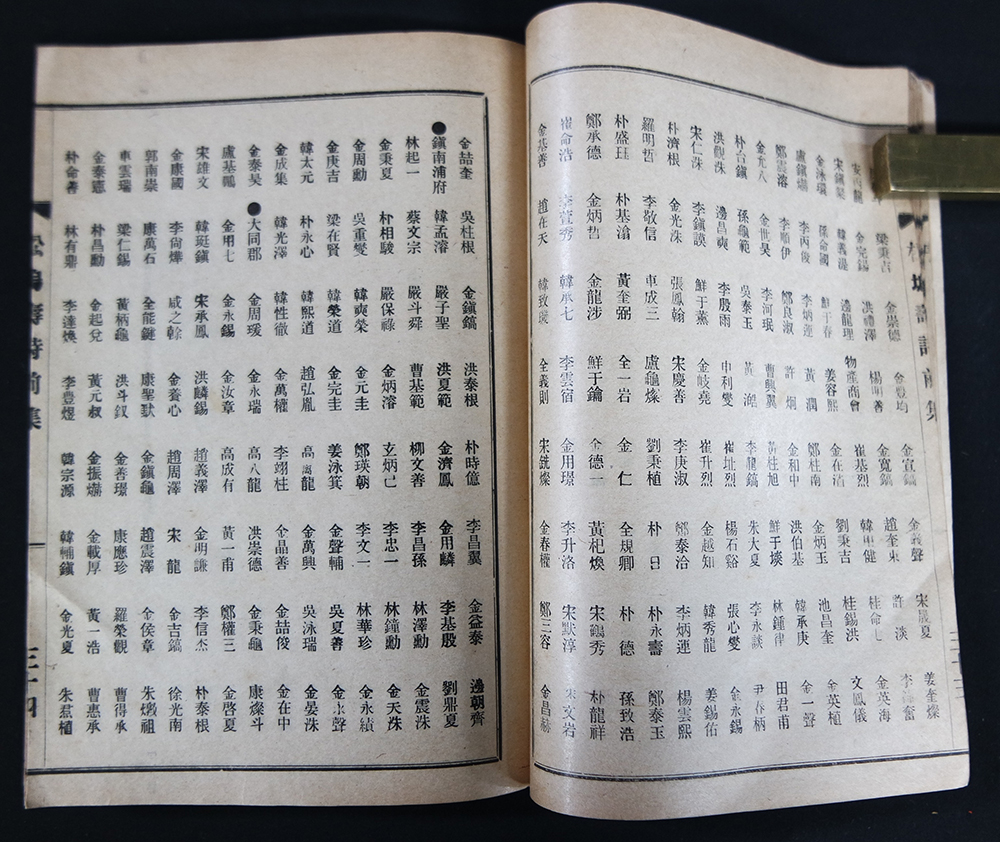 梁秉吉 金崇德 金豊均 金宜鎬 金義聲 宋晟夏 姜奎燦
安尙龍 金完錫 洪禮澤 楊明善 金寬鎬 趙奎東 許淡
宋鎭燮 韓義湜 邊龍理 物產商會 崔基烈 韓甲健 桂命七 金英海
金泳瓊 孫命國 鮮于春 姜容熙 金在洽 劉秉吉 桂錫洪 文鳳儀
盧鎭爀 李丙俊 李炳蓮 黃潤 鄭柱南 金炳玉 池昌奎 金英植
鄭震溶 李順伊 鄭良淑 許炯 金和中 洪伯基 韓承庚 金一聲
金光八 金世昊 李河珉 曹興翼 黃桂旭 鮮于堘 林鍾律 田君甫
朴台鎭 孫龜範 吳泰玉 黃 李龍鎬 朱大夏 李永談 尹春柄
洪觀洙 邊昌奭 李殷雨 申利燮 崔址烈 楊石谿 張心燮 金永錫
宋仁洙 李鎭謨 鮮于薰 金岐堯 崔升烈 金越知 韓秀龍 姜錫佑
朴濟根 金光洙 張鳳翰 宋慶善 李庚淑 鄭泰洽 李炳運 楊雲熙
羅明哲 李敬信 車成三 盧龜燦 劉秉植 朴日 朴永壽 鄭泰玉
朴盛珏 朴基滃 黃奎弼 全一岩 金仁 全規卿 朴德 孫致浩
鄭承德 金炳哲 金龍涉 鮮于鑰 全德一 黃杞煥 宋鶴秀 朴龍祥
崔命浩 李萱秀 韓承七 李雲宿 金用璟 李升洛 宋默淳 宋文岩
金基善 趙在天 韓致瑗 全義則 宋銑燦 金春權 鄭三容 金昌赫
金喆奎 吳柱根 金鎭鎬 洪泰根 朴時億 李昌翼 金益泰 邊朝齊
●鎭南浦府 韓孟濬 嚴子聖 洪夏範 金濟鳳 金用麟 李基殷 劉鼎夏
林起一 蔡文宗 嚴斗舜 曹基範 柳文善 李昌孫 林澤勳 金震洙
金秉夏 朴相駿 嚴保祿 金炳溶 玄炳己 李忠一 林鐘勳 金天洙
金周勳 吳重燮 韓奭榮 金元圭 鄭瑛朝 李文一 林華珍 金永績
金庚吉 梁在賢 韓榮道 金完圭 姜泳箕 金聲輔 吳夏善 金永聲
韓太元 朴永心 韓熙道 趙弘胤 高萬龍 金萬興 吳泳瑞 金晏洙
金成集 韓光澤 韓性徹 金萬權 李翊柱 金晶善 金喆俊 金在中
金泰昊 ●大同郡 金周瑗 金永瑞 高八龍 洪崇德 金秉龜 康燦斗
盧基鳳 金用七 金永錫 金汝章 高成有 黃一甫 鄭權三 金啓夏
宋雄文 韓珽鎭 宋承鳳 洪麟錫 趙義澤 金明謙 李信杰 朴泰根
金康國 李尙燁 咸之榦 金養心 趙周澤 宋龍 金吉鎬 徐光南
郭南崇 康萬石 全能鍵 康聖默 金鎭龜 趙震澤 金侯章 朱燉祖
車雲瑞 梁仁錫 黃柄龜 洪斗釵 金善璟 康應珍 羅榮觀 曹得承
金泰憲 朴昌勳 金起兌 黃元叔 金振爀 金載厚 黃一浩 曹惠承
朴命善 林有鼎 李達煥 李豊煜 韓宗源 韓輔鎭 金光夏 朱君植